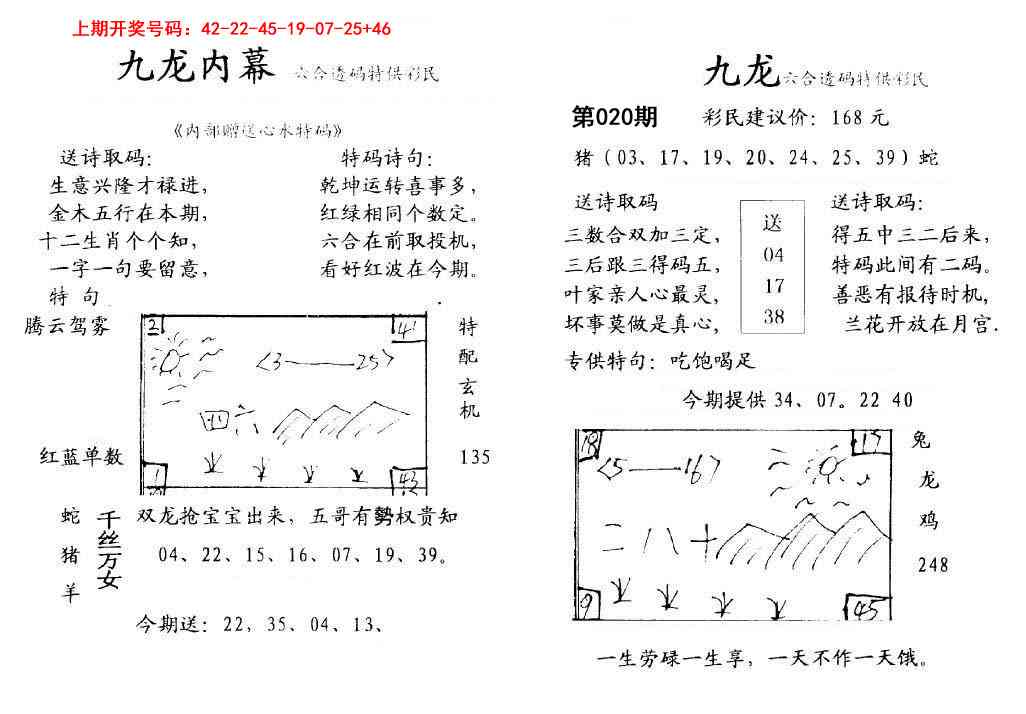 上期开奖号码：42-22-45-19-07-25+46
九龙内幕 六合透码特供彩民
《内部赠送心水特码》
送诗取码：
生意兴隆才禄进，
金木五行在本期，
十二生肖个个知，
一字一句要留意，
特码诗句：
乾坤运转喜事多，
红绿相同个数定。
六合在前取投机，
看好红波在今期。
特 句
腾云驾雾
红蓝单数
41
<3——25>
四六
1
43
特
配
玄
机
135
蛇
猪
羊
千丝万女
双龙抢宝宝出来，五哥有勢权贵知
04、22、15、16、07、19、39。
今期送：22，35、04、13、
九龙六合透码特供彩民
第020期 彩民建议价：168元
猪（03、17、19、20、24、25、39）蛇
送诗取码
三数合双加三定，
三后跟三得码五，
叶家亲人心最灵，
坏事莫做是真心，
送
04
17
38
送诗取码：
得五中三二后来，
特码此间有二码。
善恶有报待时机，
兰花开放在月宫.
专供特句：吃饱喝足
今期提供 34、07。22 40
18
<5——16>
二八十
9
45
兔
龙
鸡
248
一生劳碌一生享，一天不作一天饿。